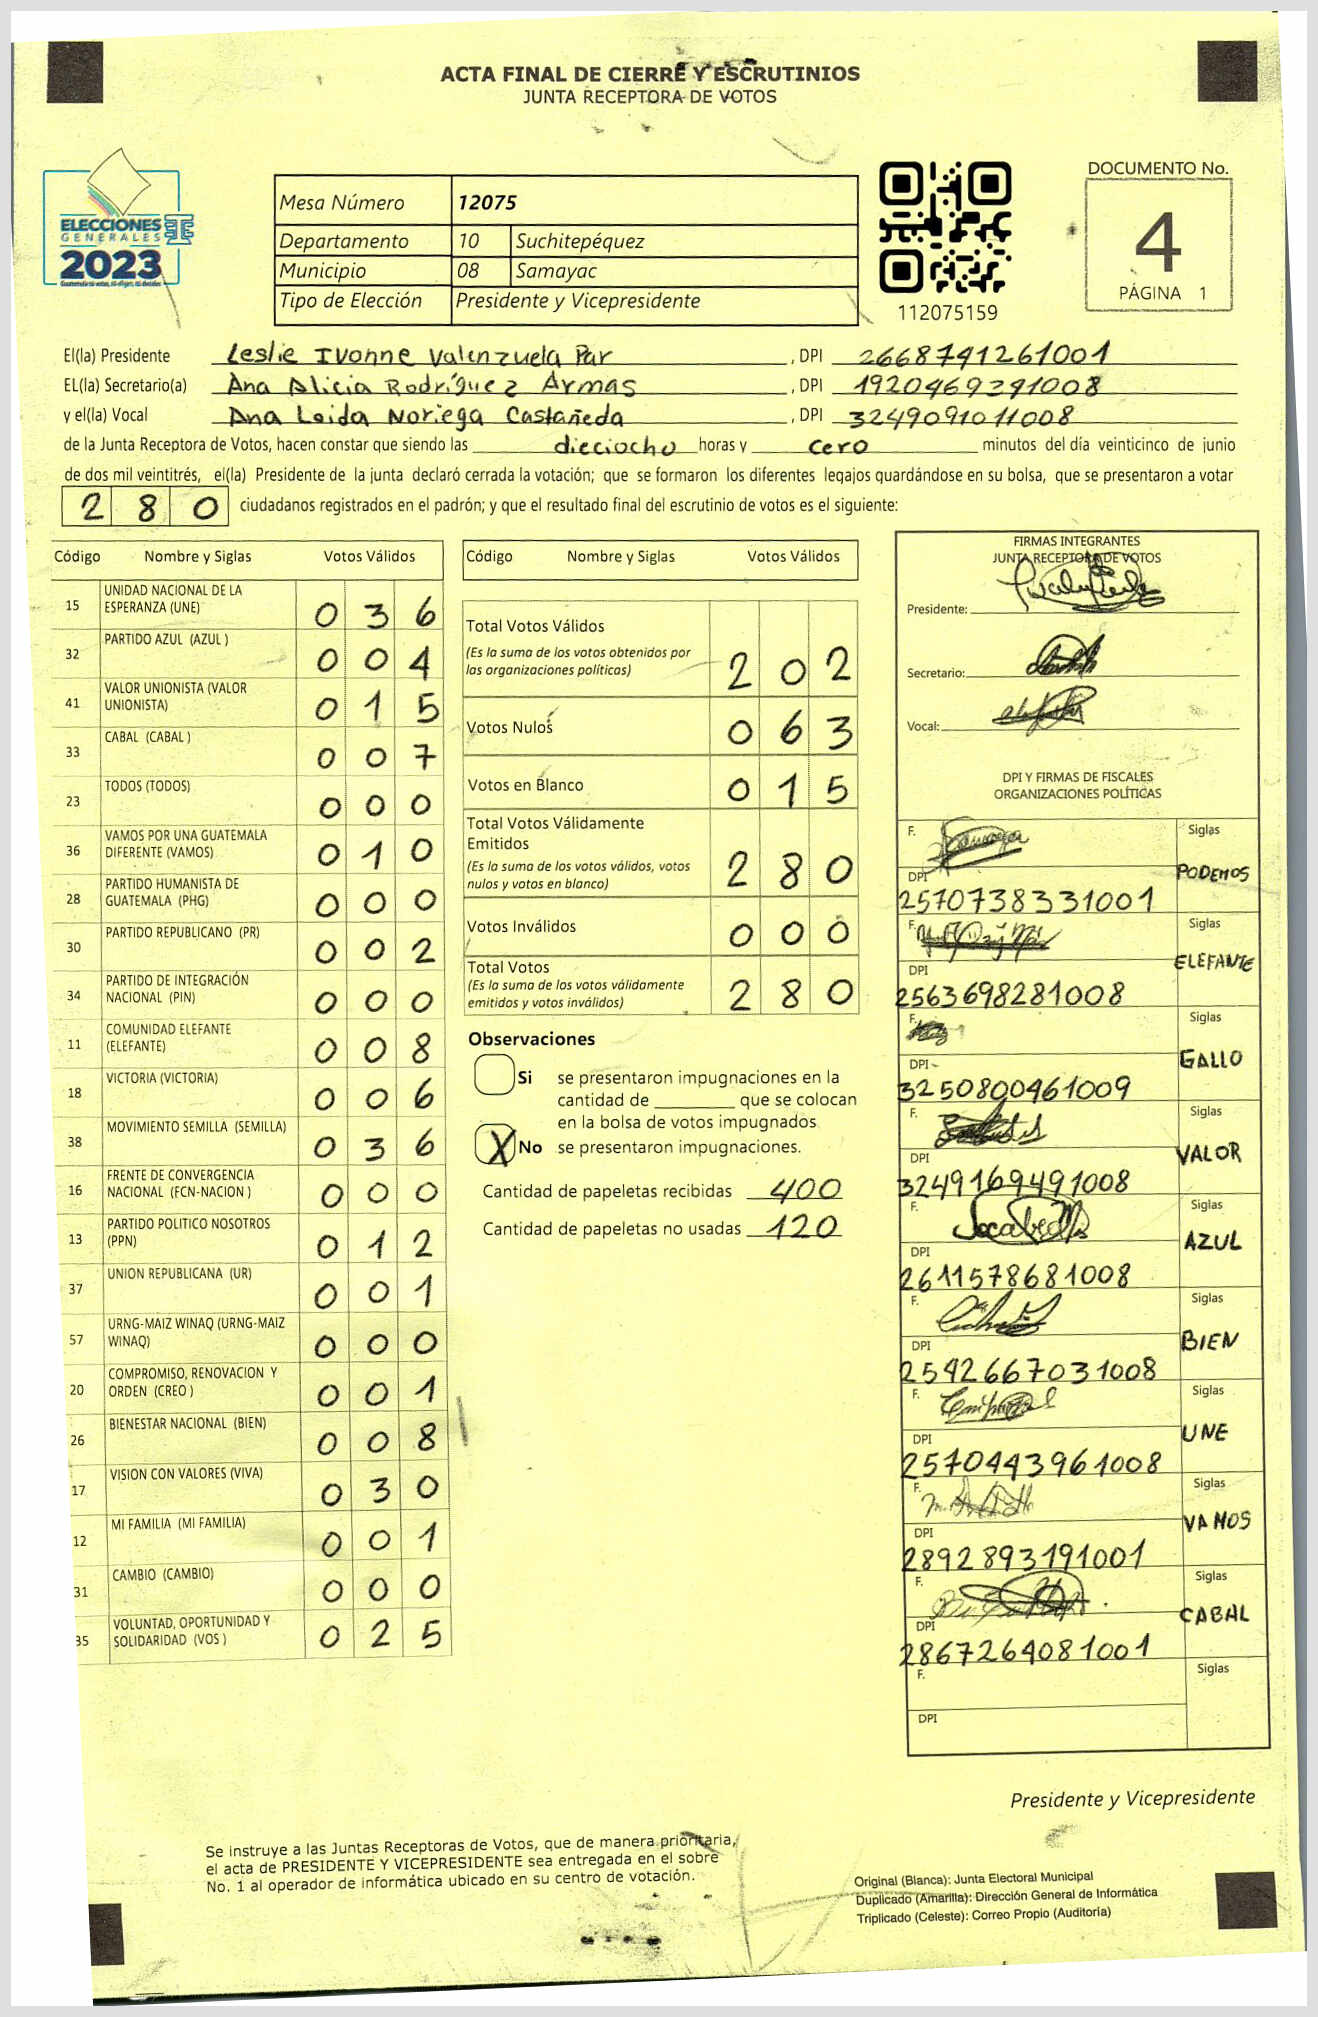 ACTA FINAL DE CIERRE Y ESCRUTINIOS
JUNTA RECEPTORA DE VOTOS
ELECCIONES
GENERALES
2023
Mesa Número 12075
Departamento 10 Suchitepéquez
Municipio 08 Samayac
Tipo de Elección Presidente y Vicepresidente
112075159
DOCUMENTO No.
4
PÁGINA 1
El(la) Presidente Leslie Ivonne Valenzuela Par , DPI 2668741261001
EL(la) Secretario(a) Ana Alicia Rodríguez Armas , DPI 1920469391008
y el(la) Vocal Ana Leida Noriega Castañeda , DPI 3249091011008
de la Junta Receptora de Votos, hacen constar que siendo las dieciocho horas y cero minutos del día veinticinco de junio
de dos mil veintitrés, el(la) Presidente de la junta declaró cerrada la votación; que se formaron los diferentes legajos guardándose en su bolsa, que se presentaron a votar
280 ciudadanos registrados en el padrón; y que el resultado final del escrutinio de votos es el siguiente:
Código Nombre y Siglas Votos Válidos
15 UNIDAD NACIONAL DE LA ESPERANZA (UNE) 036
32 PARTIDO AZUL (AZUL ) 004
41 VALOR UNIONISTA (VALOR UNIONISTA) 015
33 CABAL (CABAL ) 007
23 TODOS (TODOS) 000
36 VAMOS POR UNA GUATEMALA DIFERENTE (VAMOS) 010
28 PARTIDO HUMANISTA DE GUATEMALA (PHG) 000
30 PARTIDO REPUBLICANO (PR) 002
34 PARTIDO DE INTEGRACIÓN NACIONAL (PIN) 000
11 COMUNIDAD ELEFANTE (ELEFANTE) 008
18 VICTORIA (VICTORIA) 006
38 MOVIMIENTO SEMILLA (SEMILLA) 036
16 FRENTE DE CONVERGENCIA NACIONAL (FCN-NACION ) 000
13 PARTIDO POLITICO NOSOTROS (PPN) 012
37 UNION REPUBLICANA (UR) 001
57 URNG-MAIZ WINAQ (URNG-MAIZ WINAQ) 000
20 COMPROMISO, RENOVACION Y ORDEN (CREO ) 001
26 BIENESTAR NACIONAL (BIEN) 008
17 VISION CON VALORES (VIVA) 030
12 MI FAMILIA (MI FAMILIA) 001
31 CAMBIO (CAMBIO) 000
35 VOLUNTAD, OPORTUNIDAD Y SOLIDARIDAD (VOS ) 025
Código Nombre y Siglas Votos Válidos
Total Votos Válidos 202
(Es la suma de los votos obtenidos por
las organizaciones políticas)
Votos Nulos 063
Votos en Blanco 015
Total Votos Válidamente
Emitidos 280
(Es la suma de los votos válidos, votos
nulos y votos en blanco)
Votos Inválidos 000
Total Votos 280
(Es la suma de los votos válidamente
emitidos y votos inválidos)
Observaciones
Si se presentaron impugnaciones en la
cantidad de ________ que se colocan
en la bolsa de votos impugnados
X No se presentaron impugnaciones.
Cantidad de papeletas recibidas 400
Cantidad de papeletas no usadas 120
FIRMAS INTEGRANTES
JUNTA RECEPTORA DE VOTOS
Presidente:
Secretario:
Vocal:
DPI Y FIRMAS DE FISCALES
ORGANIZACIONES POLÍTICAS
F. Siglas
PODEMOS
DPI
2570738331001
F. Siglas
ELEFANTE
DPI
2563698281008
F. Siglas
GALLO
DPI
3250800461009
F. Siglas
VALOR
DPI
3249169491008
F. Siglas
AZUL
DPI
2611578681008
F. Siglas
BIEN
DPI
2542667031008
F. Siglas
UNE
DPI
2570443961008
F. Siglas
VAMOS
DPI
2892893191001
F. Siglas
CABAL
DPI
2867264081001
F. Siglas
DPI
Presidente y Vicepresidente
Se instruye a las Juntas Receptoras de Votos, que de manera prioritaria,
el acta de PRESIDENTE Y VICEPRESIDENTE sea entregada en el sobre
No. 1 al operador de informática ubicado en su centro de votación.
Original (Blanca): Junta Electoral Municipal
Duplicado (Amarilla): Dirección General de Informática
Triplicado (Celeste): Correo Propio (Auditoría)